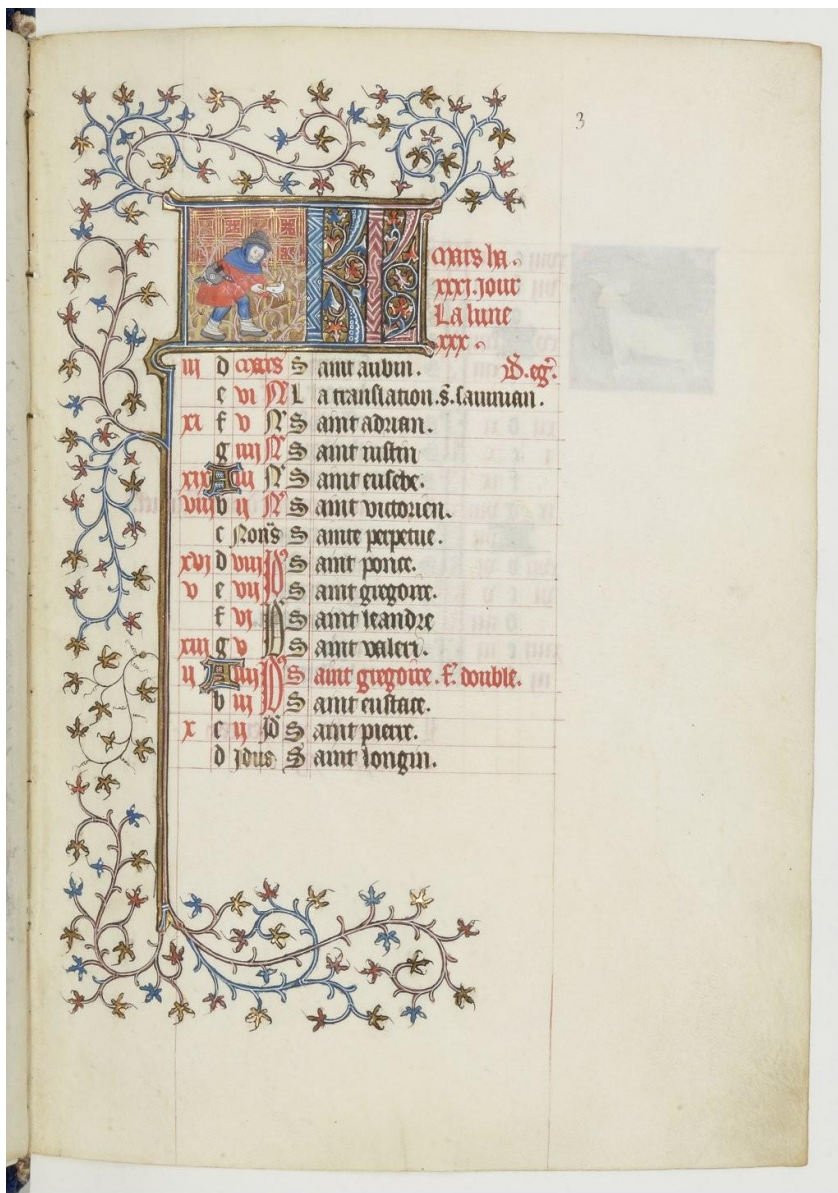 3
KL
Mars ha
xxxi. jour
La lune
xxx.
iii d Mars Saint aubin. D. eg.
e vi N La translation. s. saumian.
xi f v N Saint adrian.
g iiii N Saint iustin
xix A iii N Saint eusebe.
viii b ii N Saint victorien.
c Nons Sainte perpetue.
xvj d viii Saint ponce.
v e vii Saint gregoire.
f vj Saint leandre
xiij g v Saint valeri.
ii A iiij Saint gregoire. f. double.
b iii Saint eustace.
x c ij Saint pierre.
d idus Saint longin.